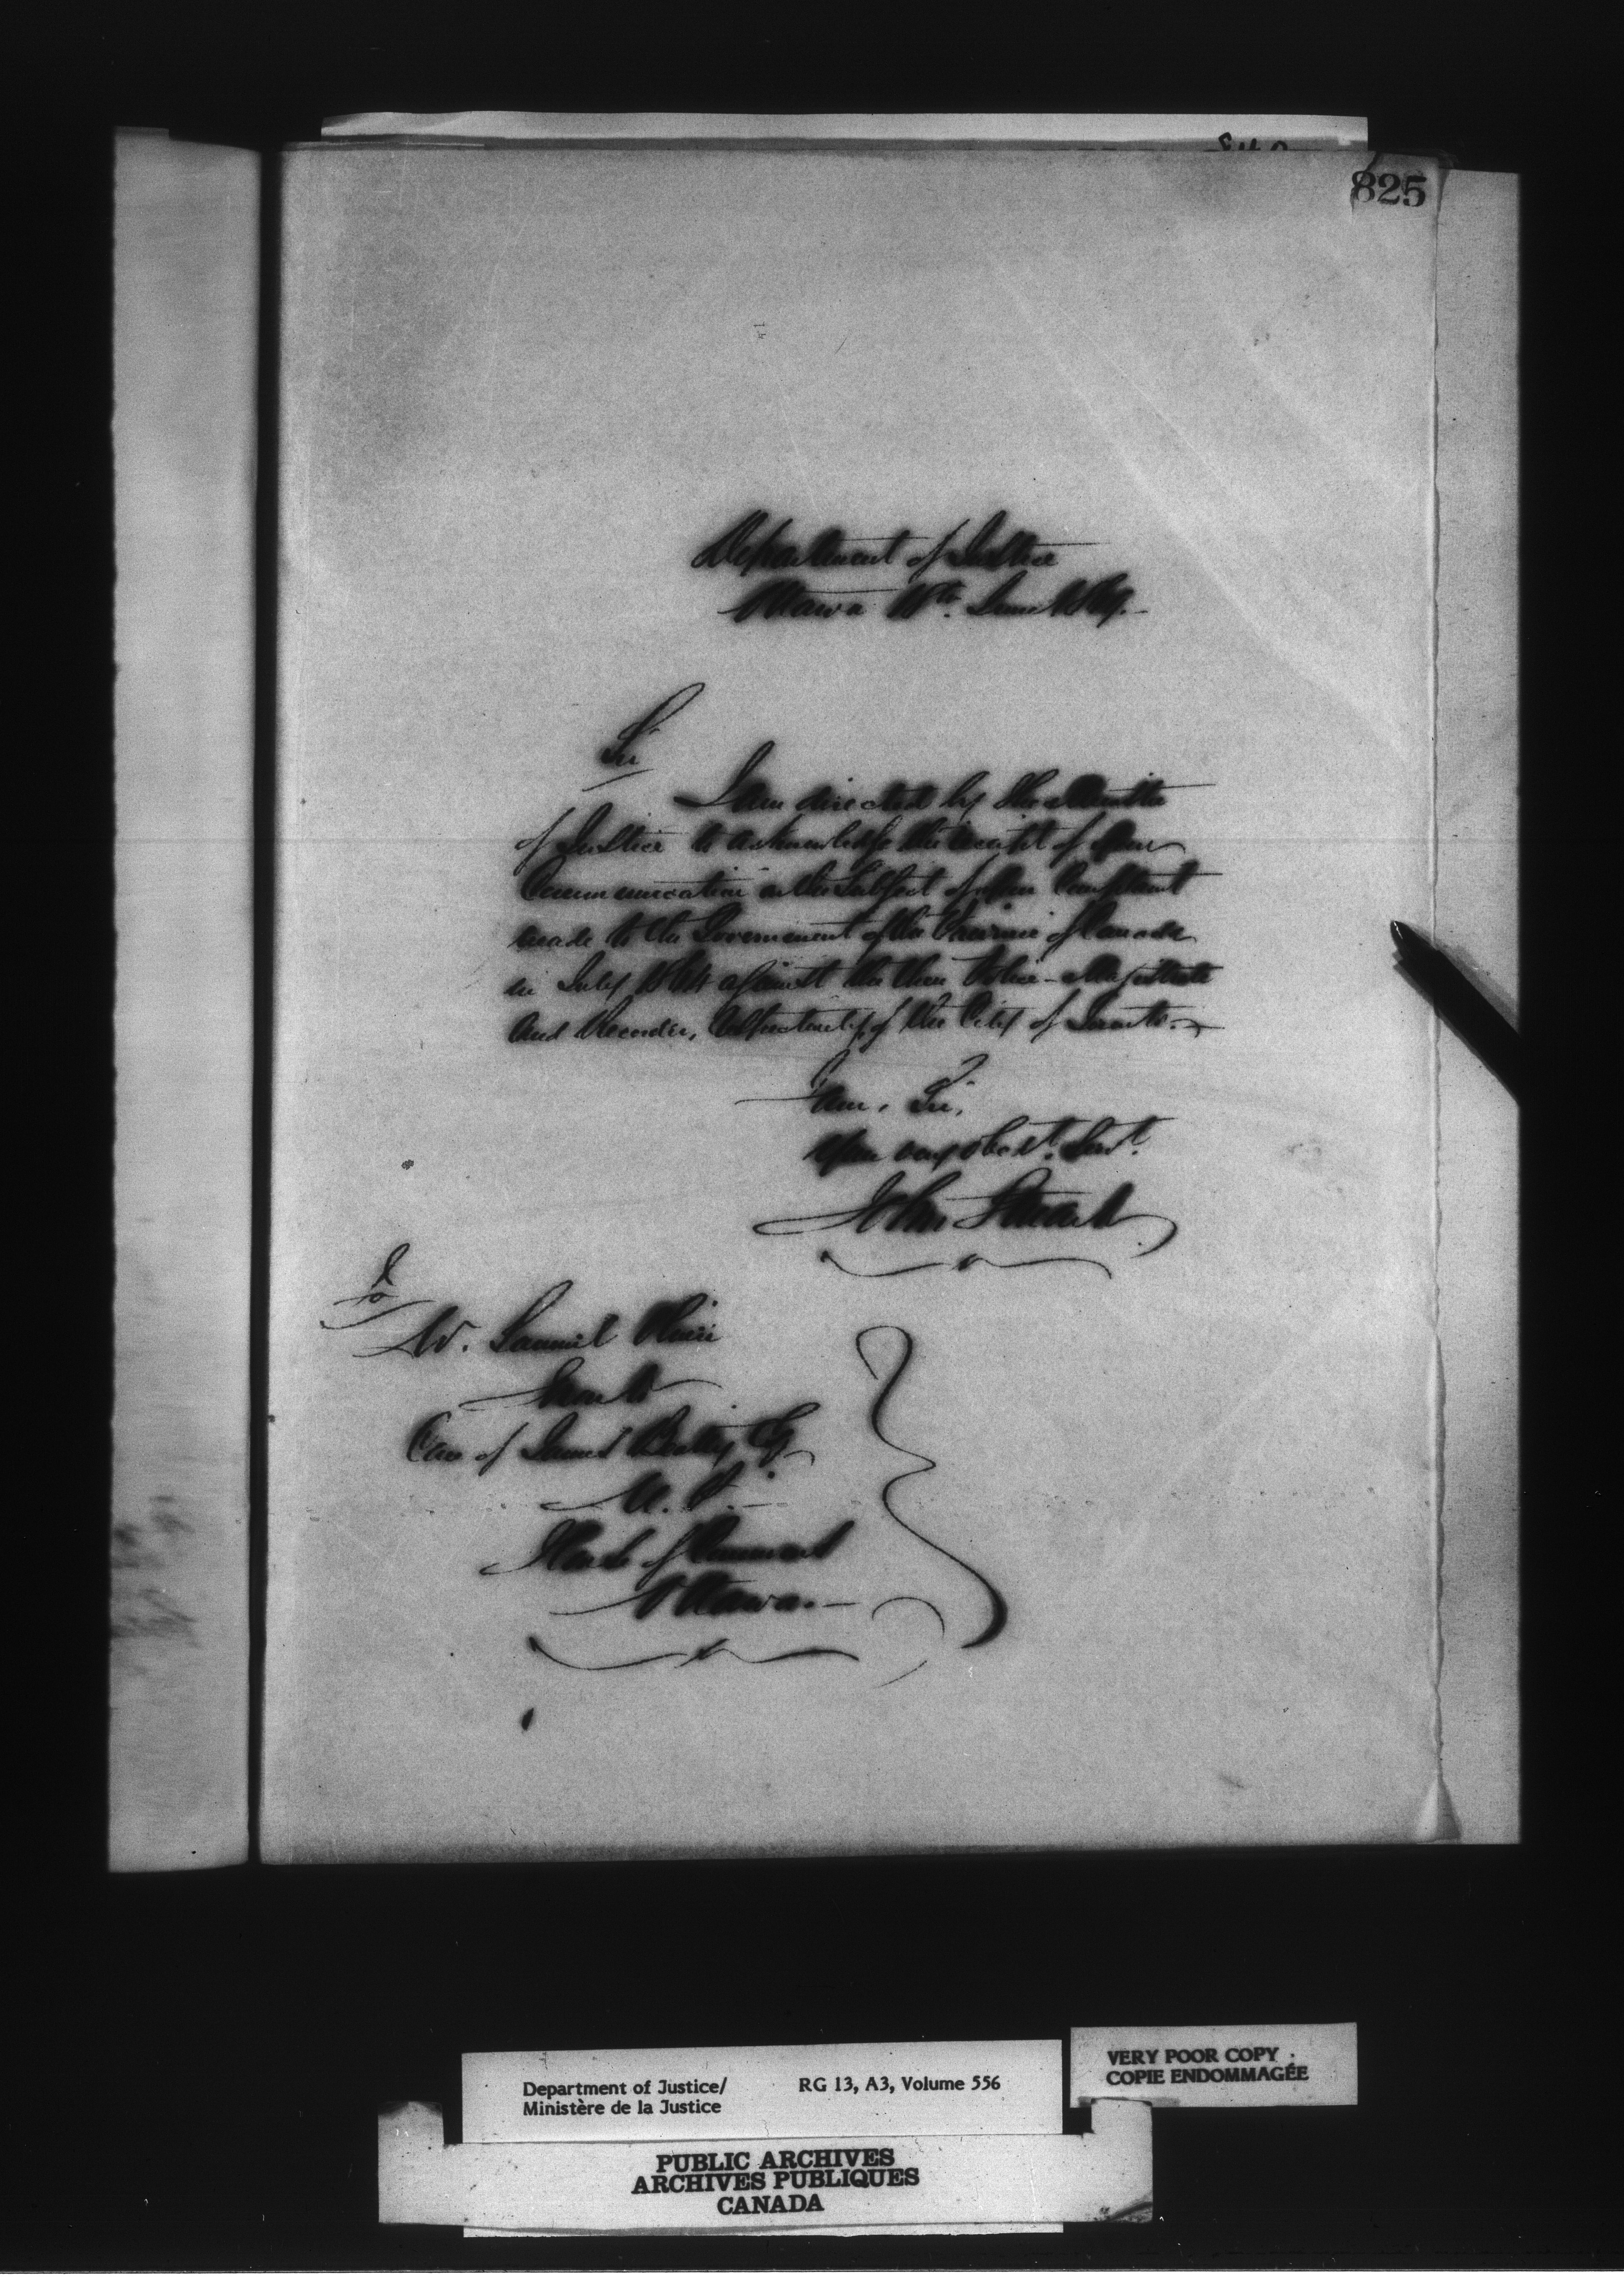 825
Department of Justice
Ottawa 11th. June 1869.
Sir
I am directed by the Minister
of Justice to acknowledge the receipt of your
Communication on the Subject of your Complaint
made to the Government of the Province of Canada
in July 1864 against the then Police-Magistrate
and Recorder, respectively of the City of Toronto.
I am, Sir,
Your very obedt. Servt.
John
To
W. Samuel
Toronto
Care of James Beaty Esq
M.P.
House of Commons
Ottawa.
Department of Justice/
Ministère de la Justice
RG 13, A3, Volume 556
VERY POOR COPY
COPIE ENDOMMAGÉE
PUBLIC ARCHIVES
ARCHIVES PUBLIQUES
CANADA